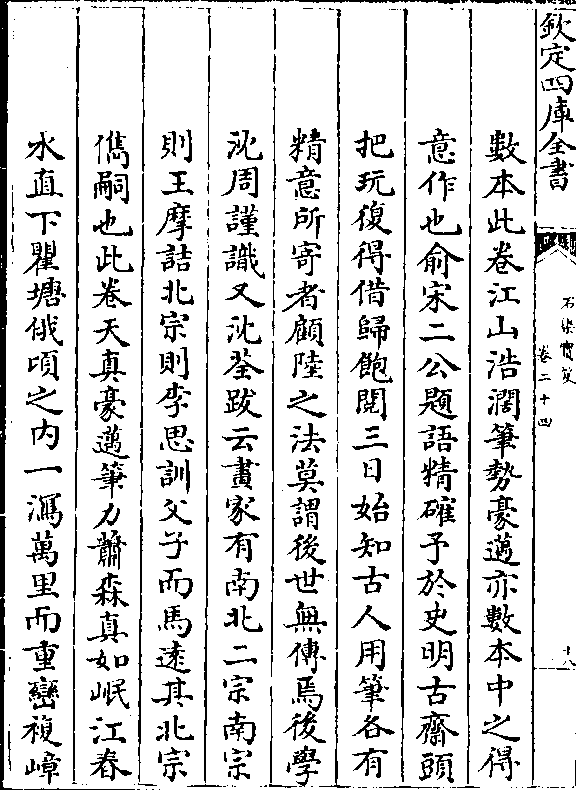 欽定四庫全書
石渠寳笈
卷二十四
十八
數本此卷江山浩濶筆勢豪邁亦數本中之得
意作也俞宋二公題語精確予於史明古齋頭
把玩復得借歸飽閱三日始知古人用筆各有
精意所寄者顧陸之法莫謂後世無傳焉後學
沈周謹識又沈荃跋云畫家有南北二宗南宗
則王摩詰北宗則李思訓父子而馬逺其北宗
儁嗣也此卷天真豪邁筆力蕭森真如岷江春
水直下瞿塘俄頃之内一瀉萬里而重巒複嶂